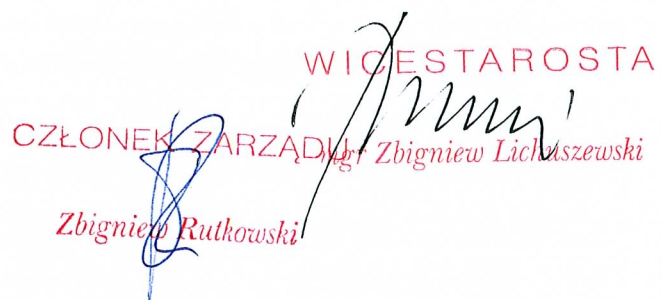 WICESTAROSTA
mgr Zbigniew Lichuszewski
CZŁONEK ZARZĄDU
Zbigniew Rutkowski